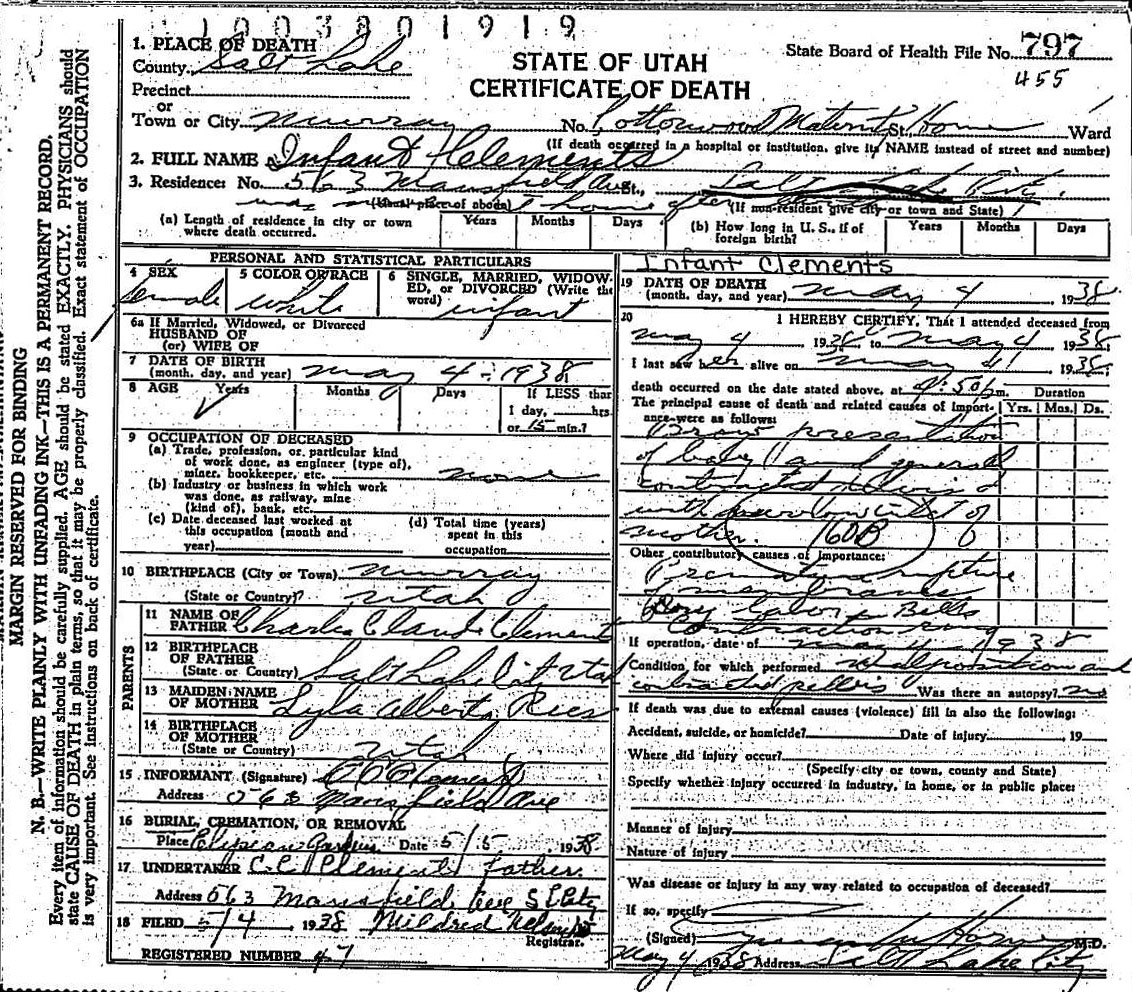 1003801919
1. PLACE OF DEATH
County Salt Lake
Precinct
or
Town or City Murray No. Cottonwood Maternity St. Home Ward
STATE OF UTAH
CERTIFICATE OF DEATH
State Board of Health File No. 797
455
(If death occurred in a hospital or institution, give its NAME instead of street and number)
2. FULL NAME Infant Clements
3. Residence: No. 563 Mansfield Ave St., Salt Lake City
(Usual place of abode) (If non-resident give city or town and State)
(a) Length of residence in city or town where death occurred. Years Months Days
(b) How long in U. S., if of foreign birth? Years Months Days
PERSONAL AND STATISTICAL PARTICULARS
4 SEX female
5 COLOR OR RACE white
6 SINGLE, MARRIED, WIDOWED, or DIVORCED (Write the word) infant
6a If Married, Widowed, or Divorced
HUSBAND OF
(or) WIFE OF
7 DATE OF BIRTH
(month, day, and year) May 4 - 1938
8 AGE Years Months Days If LESS than
1 day, hrs.
or 15 min.?
9 OCCUPATION OF DECEASED
(a) Trade, profession, or particular kind
of work done, as engineer (type of),
miner, bookkeeper, etc. none
(b) Industry or business in which work
was done, as railway, mine
(kind of), bank, etc.
(c) Date deceased last worked at
this occupation (month and
year)
(d) Total time (years)
spent in this
occupation
10 BIRTHPLACE (City or Town) Murray
(State or Country)? Utah
PARENTS
11 NAME OF
FATHER Charles Claud Clements
12 BIRTHPLACE
OF FATHER
(State or Country) Salt Lake City Utah
13 MAIDEN NAME
OF MOTHER Lyla Alberta Rees
14 BIRTHPLACE
OF MOTHER
(State or Country) Utah
15 INFORMANT (Signature) C C Clements
Address 563 Mansfield Ave
16 BURIAL, CREMATION, OR REMOVAL
Place Elysian Gardens Date 5/5 1938
17 UNDERTAKER C.C. Clements Father
Address 563 Mansfield Ave S L City
18 FILED 5/4 1938 Mildred
Registrar.
REGISTERED NUMBER 47
Infant Clements
19 DATE OF DEATH
(month, day, and year) May 4 1938
20 I HEREBY CERTIFY, That I attended deceased from
May 4 1938 to May 4 1938
I last saw her alive on May 4 1938
death occurred on the date stated above, at 9:50 p m. Duration
The principal cause of death and related causes of importance were as follows: Yrs. Mos. Ds.
Brow presentation
of baby and general
contracted pelvis
with of
mother. 160B
Other contributory causes of importance:
Premature rupture
membranes
Long labor Bells
Contraction ring
If operation, date of May 4 1938
Condition for which performed malposition and
contracted pelvis Was there an autopsy? no
If death was due to external causes (violence) fill in also the following:
Accident, suicide, or homicide? Date of injury 19
Where did injury occur?
(Specify city or town, county and State)
Specify whether injury occurred in industry, in home, or in public place:
Manner of injury
Nature of injury
Was disease or injury in any way related to occupation of deceased?
If so, specify
(Signed) M.D.
May 4 1938 Address Salt Lake City
MARGIN RESERVED FOR BINDING
N. B.—WRITE PLAINLY WITH UNFADING INK—THIS IS A PERMANENT RECORD.
Every item of information should be carefully supplied. AGE should be stated EXACTLY. PHYSICIANS should
state CAUSE OF DEATH in plain terms, so that it may be properly classified. Exact statement of OCCUPATION
is very important. See instructions on back of certificate.